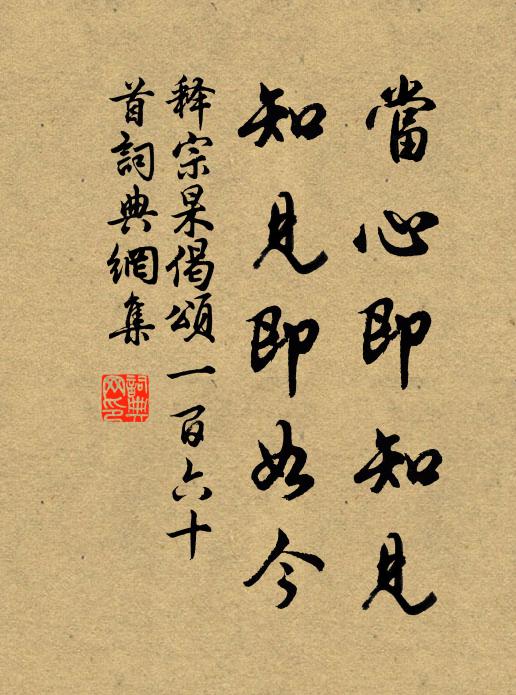 當心即知見
知見即如今
释宗杲偈頌一百六十
首詞典網集
詞典
网印